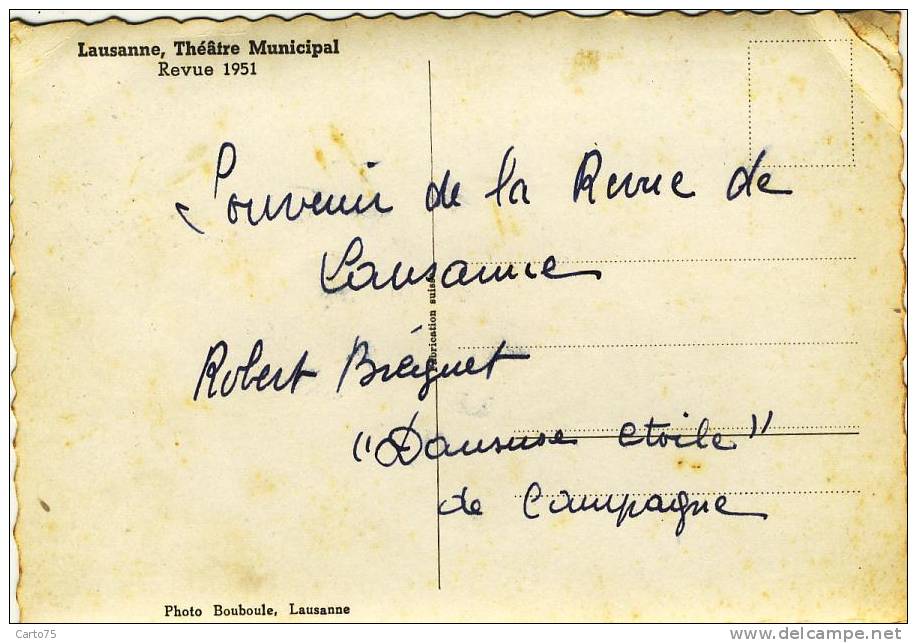 Lausanne, Théâtre Municipal
Revue 1951
Souvenir de la Revue de
Lausanne
Fabrication suisse
Robert Bréguet
"Danseuse etoile"
de Campagne
Photo Bouboule, Lausanne
Carto75
www.delcampe.net